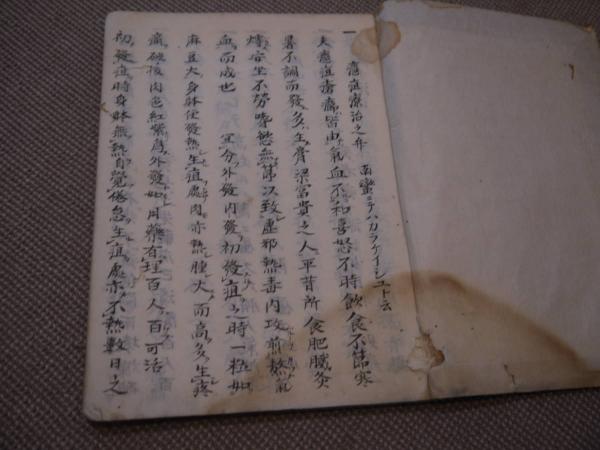 一 癰疽療治之弁 南蛮ニテハカラケイシュト云
夫癰疽瘡癤皆由氣血不和喜怒不時飲食不節寒
暑不調而發多生膏粱富貴之人平昔所食肥膩炙
安坐不勞嗜慾無節以致虚邪熱毒内攻煎熬氣
血而成也 分外發内發初發疽之時一粒如
麻豆大身體便發熱生疽處肉亦熱腫大而高多生疼
痛破後肉色紅紫為外發如用藥有理百人百可活
初發疽時身體無熱自覺倦怠生疽處亦不熱數日之